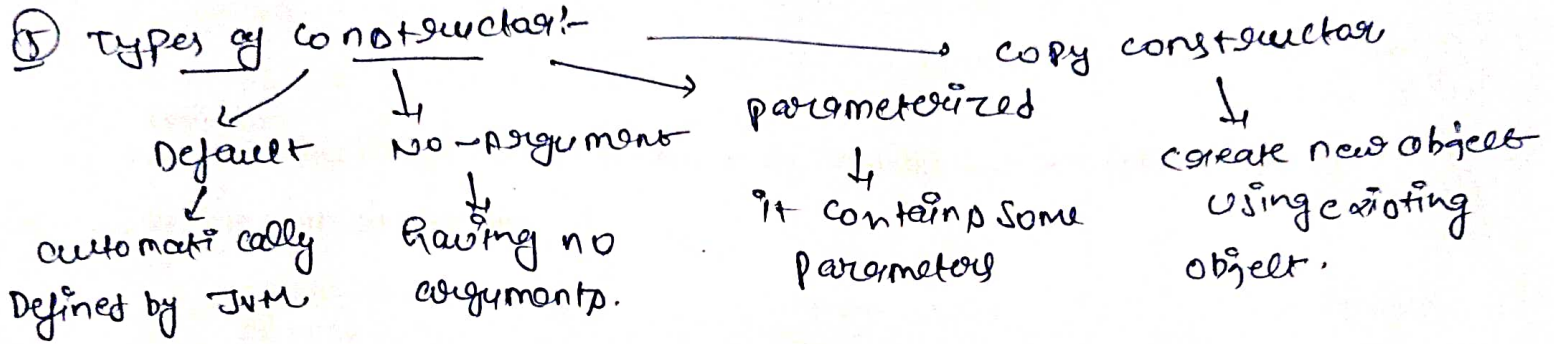 ⑤ Types of constructor:-
Default
automatically
Defined by JVM
No-Argument
having no
arguments.
parameterized
it contains some
parameters
copy constructor
create new object
using existing
object.